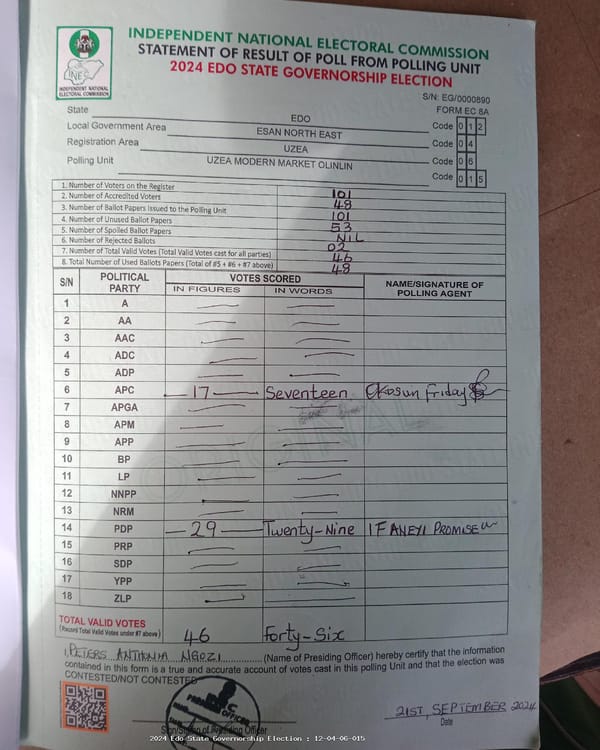 INDEPENDENT NATIONAL ELECTORAL COMMISSION
STATEMENT OF RESULT OF POLL FROM POLLING UNIT
2024 EDO STATE GOVERNORSHIP ELECTION
INEC
INDEPENDENT NATIONAL
ELECTORAL COMMISSION
S/N: EG/0000890
FORM EC 8A
State EDO Code 0 1 2
Local Government Area ESAN NORTH EAST Code 0 4
Registration Area UZEA Code 0 6
Polling Unit UZEA MODERN MARKET OLINLIN Code 0 1 5
1. Number of Voters on the Register 101
2. Number of Accredited Voters 48
3. Number of Ballot Papers Issued to the Polling Unit 101
4. Number of Unused Ballot Papers 53
5. Number of Spoiled Ballot Papers NIL
6. Number of Rejected Ballots 02
7. Number of Total Valid Votes (Total Valid Votes cast for all parties) 46
8. Total Number of Used Ballots Papers (Total of #5 + #6 + #7 above) 48
S/N POLITICAL PARTY VOTES SCORED NAME/SIGNATURE OF POLLING AGENT
IN FIGURES IN WORDS
1 A
2 AA
3 AAC
4 ADC
5 ADP
6 APC 17 Seventeen Okosun Friday
7 APGA
8 APM
9 APP
10 BP
11 LP
12 NNPP
13 NRM
14 PDP 29 Twenty-Nine IFANEYI PROMISE
15 PRP
16 SDP
17 YPP
18 ZLP
TOTAL VALID VOTES 46 Forty-Six
(Record Total Valid Votes under #7 above)
I, PETERS ANTHONIA NGOZI (Name of Presiding Officer) hereby certify that the information
contained in this form is a true and accurate account of votes cast in this polling Unit and that the election was
CONTESTED/NOT CONTESTED
PRESIDING OFFICER
21ST, SEPTEMBER 2024
Date
2024 Edo State Governorship Election : 12-04-06-015